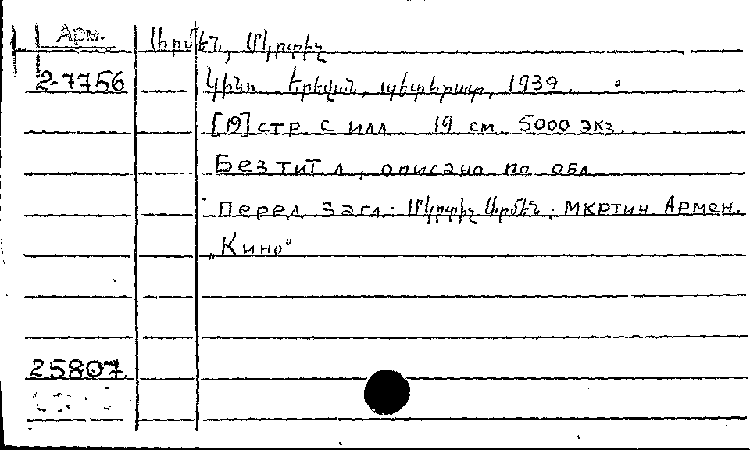 Арм. Արմէն, Մկրտիչ
2-7756 Կինո Երեվան, պետհրատ, 1939.
[19] стр. с илл. 19 см. 5000 экз.
Без тит л, описано по обл
Перед загл: Մկրտիչ Արմէն; Мкртич Армен.
„Кино"
25807